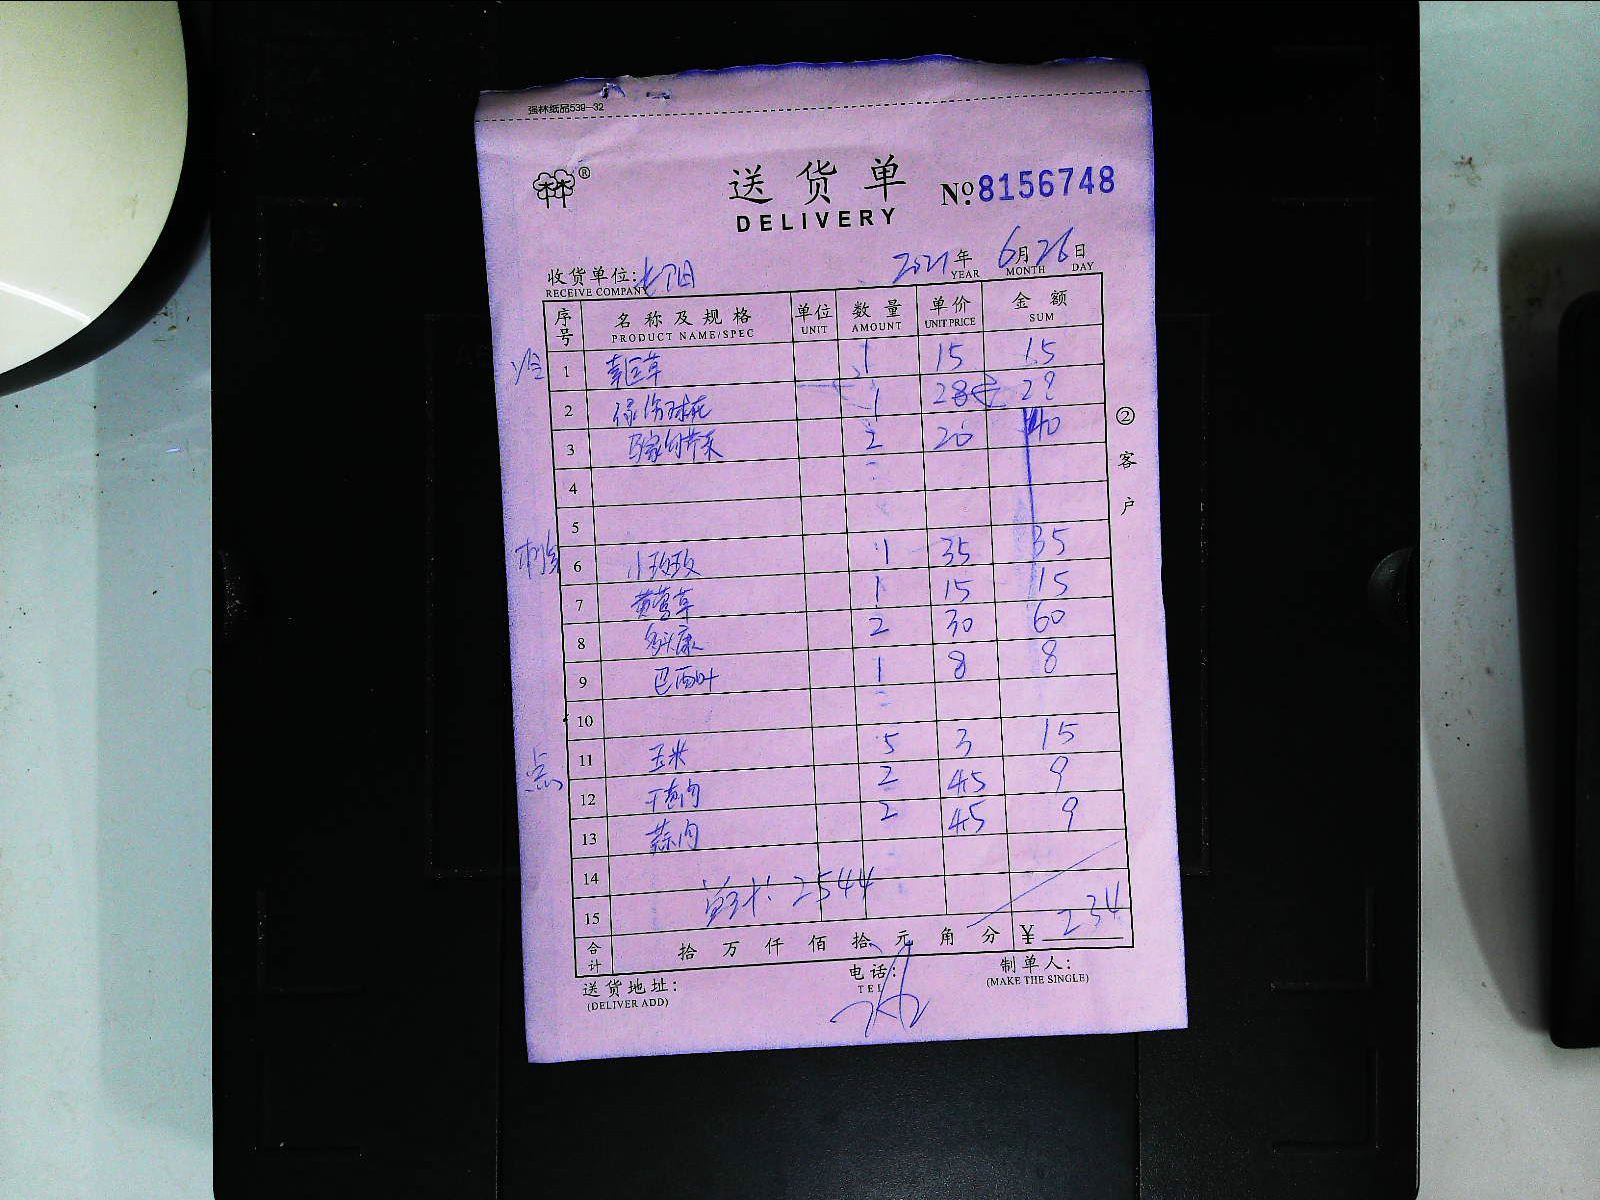 强林纸品539-32
送货单
DELIVERY
№ 8156748
收货单位:
RECEIVE COMPANY
2021年 6月26日
YEAR MONTH DAY
序号 名称及规格 单位 数量 单价 金额
PRODUCT NAME/SPEC UNIT AMOUNT UNIT PRICE SUM
冷 1 1 15 15
2 1 28 28
3 2 20 40
4
5
6 小玫玫 1 35 35
7 黄莺草 1 15 15
8 多头康 2 30 60
9 巴西叶 1 8 8
10
点 11 玉米 5 3 15
12 2 4.5 9
13 蒜肉 2 4.5 9
14
15 总计: 2544
合计 拾 万 仟 佰 拾 元 角 分 ¥ 234
送货地址:
(DELIVER ADD)
电话:
TEL
制单人:
(MAKE THE SINGLE)
②客户